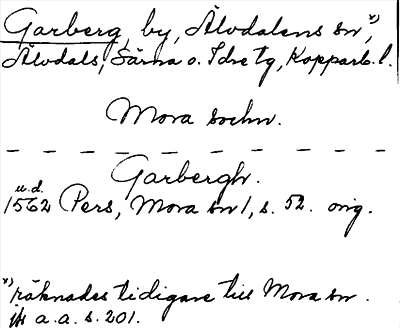 Garberg, by, Älvdalens sn x),
Älvdals, Särna o. Idre tg, Kopparb. l.
Mora sochn.
Garbergh.
u.d.
1562 Pers, Mora sn 1, s. 52. orig.
x) räknades tidigare till Mora sn.
jfr a.a. s. 201.